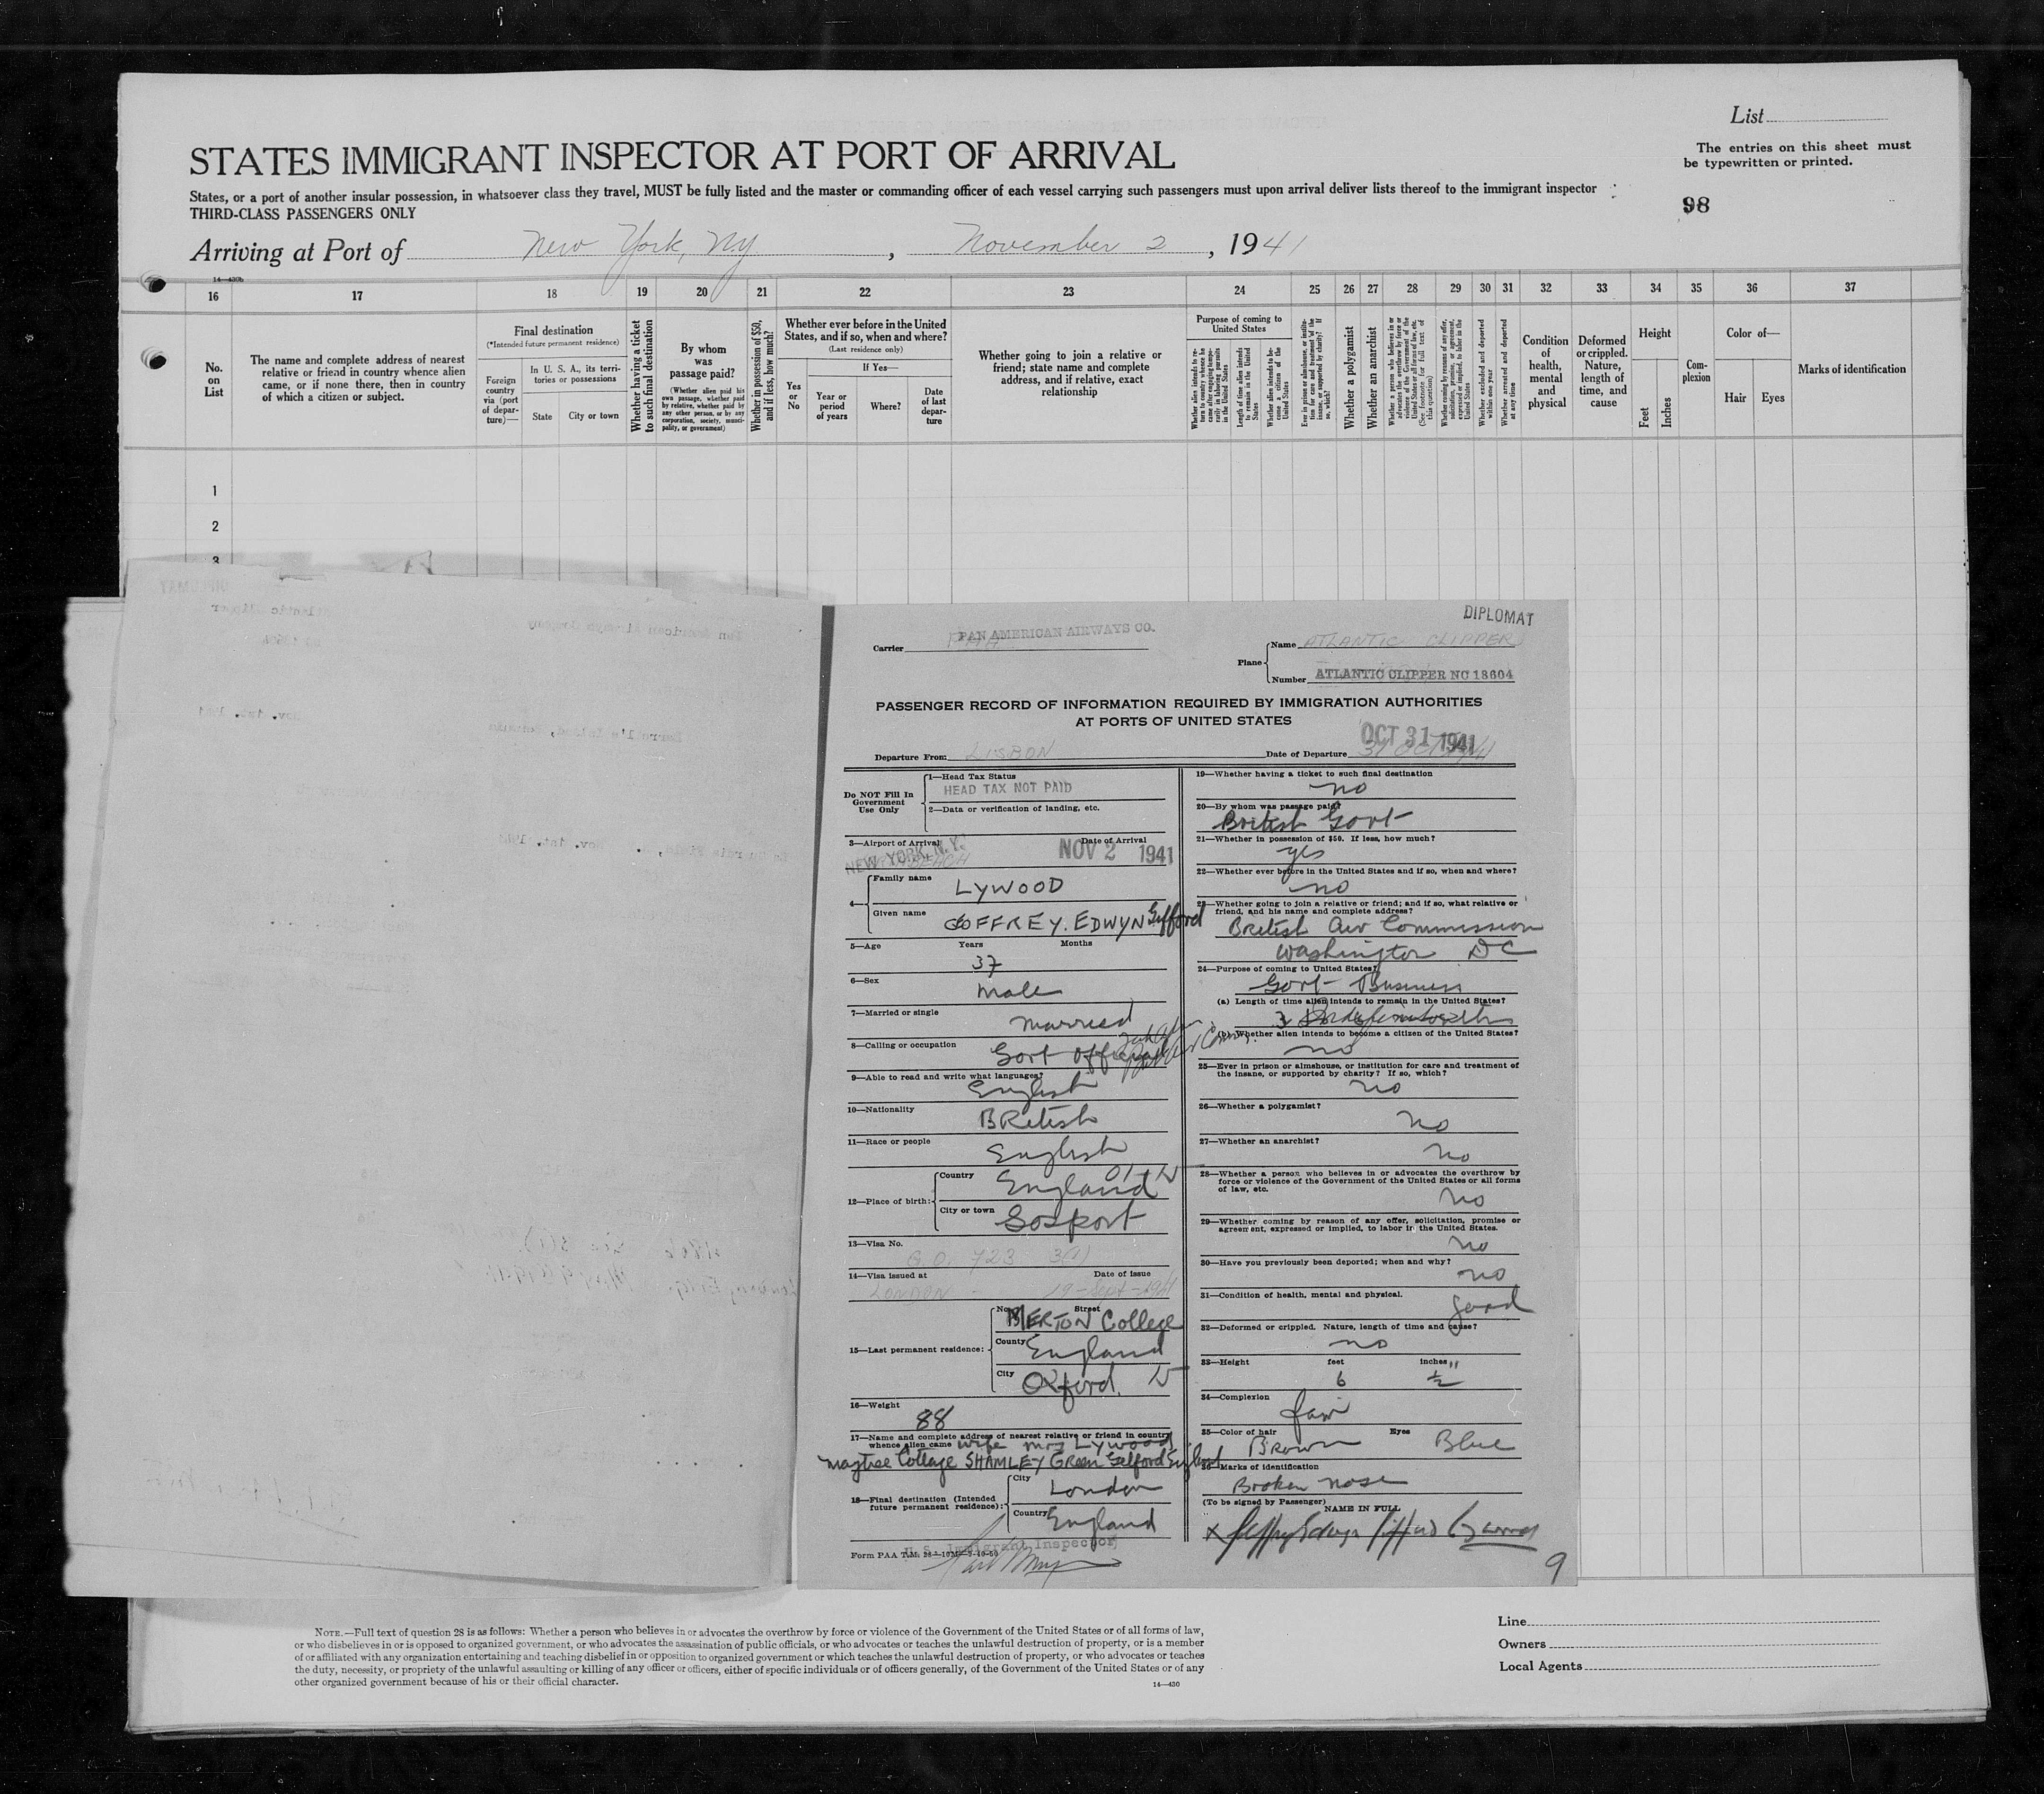 List
The entries on this sheet must
be typewritten or printed.
98
STATES IMMIGRANT INSPECTOR AT PORT OF ARRIVAL
States, or a port of another insular possession, in whatsoever class they travel, MUST be fully listed and the master or commanding officer of each vessel carrying such passengers must upon arrival deliver lists thereof to the immigrant inspector
THIRD-CLASS PASSENGERS ONLY
Arriving at Port of New York, NY, November 2, 1941
14—430b
16 17 18 19 20 21 22 23 24 25 26 27 28 29 30 31 32 33 34 35 36 37
No. on List
The name and complete address of nearest
relative or friend in country whence alien
came, or if none there, then in country
of which a citizen or subject.
Final destination
(*Intended future permanent residence)
Foreign country via (port of departure)—
In U. S. A., its territories or possessions
State
City or town
Whether having a ticket to such final destination
By whom was passage paid?
(Whether alien paid his own passage, whether paid by relative, whether paid by any other person, or by any corporation, society, municipality, or government)
Whether in possession of $50, and if less, how much?
Whether ever before in the United States, and if so, when and where?
(Last residence only)
Yes or No
If Yes—
Year or period of years
Where?
Date of last departure
Whether going to join a relative or
friend; state name and complete
address, and if relative, exact
relationship
Purpose of coming to United States
Whether alien intends to return to country whence he came after engaging temporarily in laboring pursuits in the United States
Length of time alien intends to remain in the United States
Whether alien intends to become a citizen of the United States
Ever in prison or almshouse, or institution for care and treatment of the insane, or supported by charity? If so, which?
Whether a polygamist
Whether an anarchist
Whether a person who believes in or advocates the overthrow by force or violence of the Government of the United States or all forms of law, etc. (See footnote for full text of this question)
Whether coming by reason of any offer, solicitation, promise, or agreement, expressed or implied, to labor in the United States
Whether excluded and deported within one year
Whether arrested and deported at any time
Condition of health, mental and physical
Deformed or crippled. Nature, length of time, and cause
Height
Feet
Inches
Complexion
Color of—
Hair
Eyes
Marks of identification
1
2
3
DIPLOMAT
Carrier PAN AMERICAN AIRWAYS CO.
Plane Name ATLANTIC CLIPPER
Number ATLANTIC CLIPPER NC 18604
PASSENGER RECORD OF INFORMATION REQUIRED BY IMMIGRATION AUTHORITIES
AT PORTS OF UNITED STATES
Departure From: LISBON
Date of Departure OCT 31 1941
Do NOT Fill In Government Use Only
1—Head Tax Status
HEAD TAX NOT PAID
2—Data or verification of landing, etc.
3—Airport of Arrival NEW YORK, N. Y.
Date of Arrival NOV 2 1941
4— Family name LYWOOD
Given name GOFFREY. EDWYN Gifford
5—Age Years Months
37
6—Sex Male
7—Married or single Married
8—Calling or occupation Govt Official
9—Able to read and write what languages?
English
10—Nationality British
11—Race or people English
12—Place of birth: Country England
City or town Gosport
13—Visa No. G.O. 723 3(1)
14—Visa issued at LONDON Date of issue 19-Sept-1941
15—Last permanent residence: No. Street MERTON College
County England
City Oxford.
16—Weight 88
17—Name and complete address of nearest relative or friend in country
whence alien came wife Mrs Lywood
Maytree Cottage SHAMLEY Green Gilford England
18—Final destination (Intended
future permanent residence): City London
Country England
U. S. Immigrant Inspector
Form PAA T.M.
19—Whether having a ticket to such final destination
no
20—By whom was passage paid?
British Govt
21—Whether in possession of $50. If less, how much?
yes
22—Whether ever before in the United States and if so, when and where?
no
23—Whether going to join a relative or friend; and if so, what relative or
friend, and his name and complete address?
British Air Commission
Washington DC
24—Purpose of coming to United States?
Govt Business
(a) Length of time alien intends to remain in the United States?
(b) Whether alien intends to become a citizen of the United States?
no
25—Ever in prison or almshouse, or institution for care and treatment of
the insane, or supported by charity? If so, which?
no
26—Whether a polygamist?
No
27—Whether an anarchist?
No
28—Whether a person who believes in or advocates the overthrow by
force or violence of the Government of the United States or all forms
of law, etc.
No
29—Whether coming by reason of any offer, solicitation, promise or
agreement, expressed or implied, to labor in the United States.
No
30—Have you previously been deported; when and why?
no
31—Condition of health, mental and physical.
good
32—Deformed or crippled. Nature, length of time and cause?
no
33—Height feet inches
6 ½"
34—Complexion fair
35—Color of hair Brown Eyes Blue
36—Marks of identification
Broken nose
(To be signed by Passenger)
NAME IN FULL
9
NOTE.—Full text of question 28 is as follows: Whether a person who believes in or advocates the overthrow by force or violence of the Government of the United States or of all forms of law,
or who disbelieves in or is opposed to organized government, or who advocates the assassination of public officials, or who advocates or teaches the unlawful destruction of property, or is a member
of or affiliated with any organization entertaining and teaching disbelief in or opposition to organized government or which teaches the unlawful destruction of property, or who advocates or teaches
the duty, necessity, or propriety of the unlawful assaulting or killing of any officer or officers, either of specific individuals or of officers generally, of the Government of the United States or of any
other organized government because of his or their official character.
14—430
Line
Owners
Local Agents